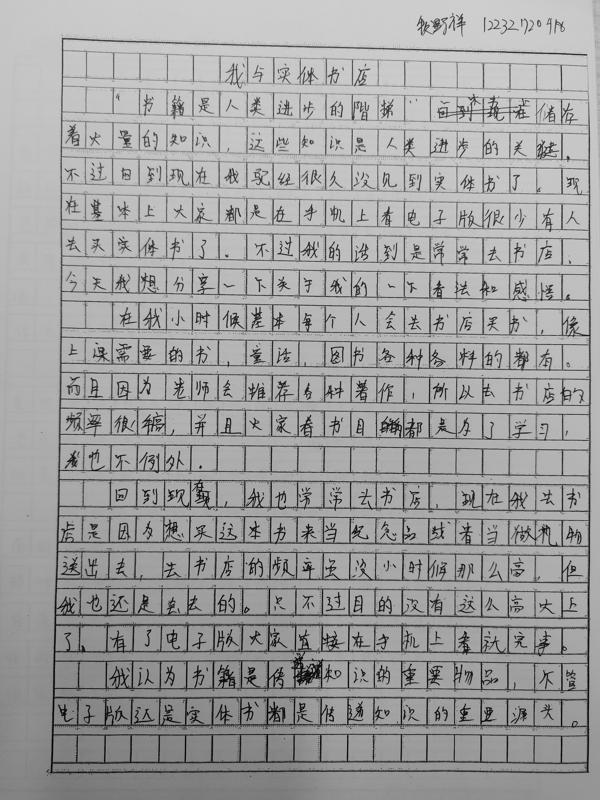 野祥 12232720418
我与实体书店
“书籍是人类进步的階梯”储存
着大量的知识，这些知识是人类进步的关键。
不过回到现在我已经很久没见到实体书了。现
在基本上大家都是在手机上看电子版很少有人
去买实体书了。不过我的话到是常常去书店，
今天我想分享一下关于我的一下看法和感悟。
在我小时候基本每个人会去书店买书，像
上课需要的书，童话，图书各种各料的都有。
而且因为老师会推荐各种著作，所以去书店的
频率很高，并且大家看书目的都是为了学习，
我也不例外．
回到现在，我也常常去书店，现在我去书
店是因为想买这本书来当纪念品或者当做礼物
送出去，去书店的频率虽没小时候那么高，但
我也还是会去的。只不过目的没有这么高大上
了。有了电子版大家直接在手机上看就完事。
我认为书籍是传递知识的重要物品，不管
电子版还是实体书都是传递知识的重要源头。